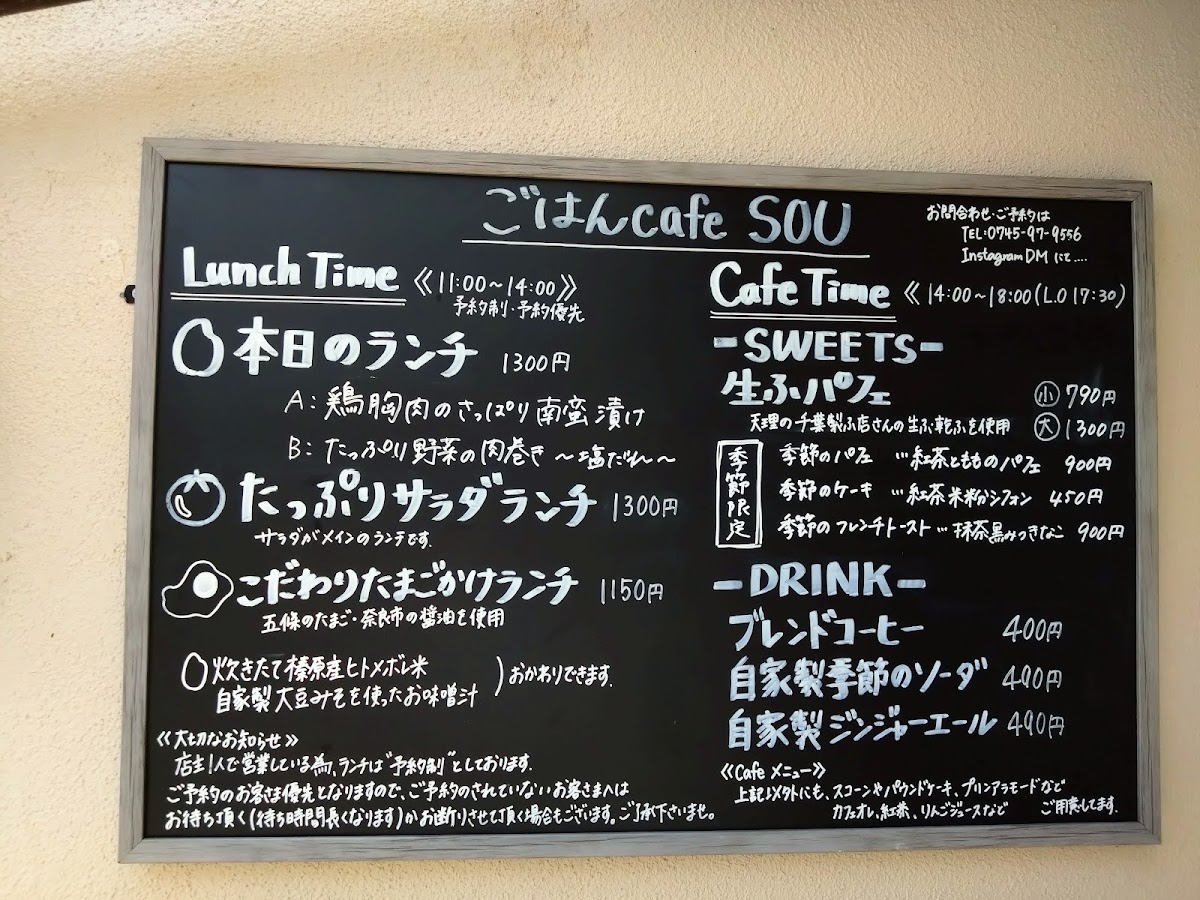 ごはんcafe SOU
お問合わせ・ご予約は
TEL:0745-97-9556
Instagram DM にて....
Lunch Time 《11:00～14:00》
予約制・予約優先
本日のランチ 1300円
A: 鶏胸肉のさっぱり南蛮漬け
B: たっぷり野菜の肉巻き ～塩だれ～
たっぷりサラダランチ 1300円
サラダがメインのランチです.
こだわりたまごかけランチ 1150円
五條のたまご・奈良市の醤油を使用
炊きたて榛原産ヒトメボレ米
自家製大豆みそを使ったお味噌汁
)おかわりできます.
《大切なお知らせ》
店主1人で営業している為、ランチは"予約制"としております.
ご予約のお客さま優先となりますので、ご予約のされていないお客さまへは
お待ち頂く(待ち時間長くなります)かお断りさせて頂く場合もございます。ご了承下さいませ。
Cafe Time 《14:00～18:00(L.O 17:30)
-SWEETS-
生ふパフェ 小 790円
天理の千葉製ふ店さんの生ふ・乾ふを使用 大 1300円
季節限定
季節のパフェ …紅茶とももの パフェ 900円
季節のケーキ …紅茶米粉シフォン 450円
季節の フレンチトースト … 抹茶黒みつきなこ 900円
-DRINK-
ブレンドコーヒー 400円
自家製季節のソーダ 490円
自家製ジンジャーエール 490円
《Cafe メニュー》
上記以外にも、スコーンやパウンドケーキ、プリンアラモードなど
カフェオレ、紅茶、りんごジュースなど ご用意してます.